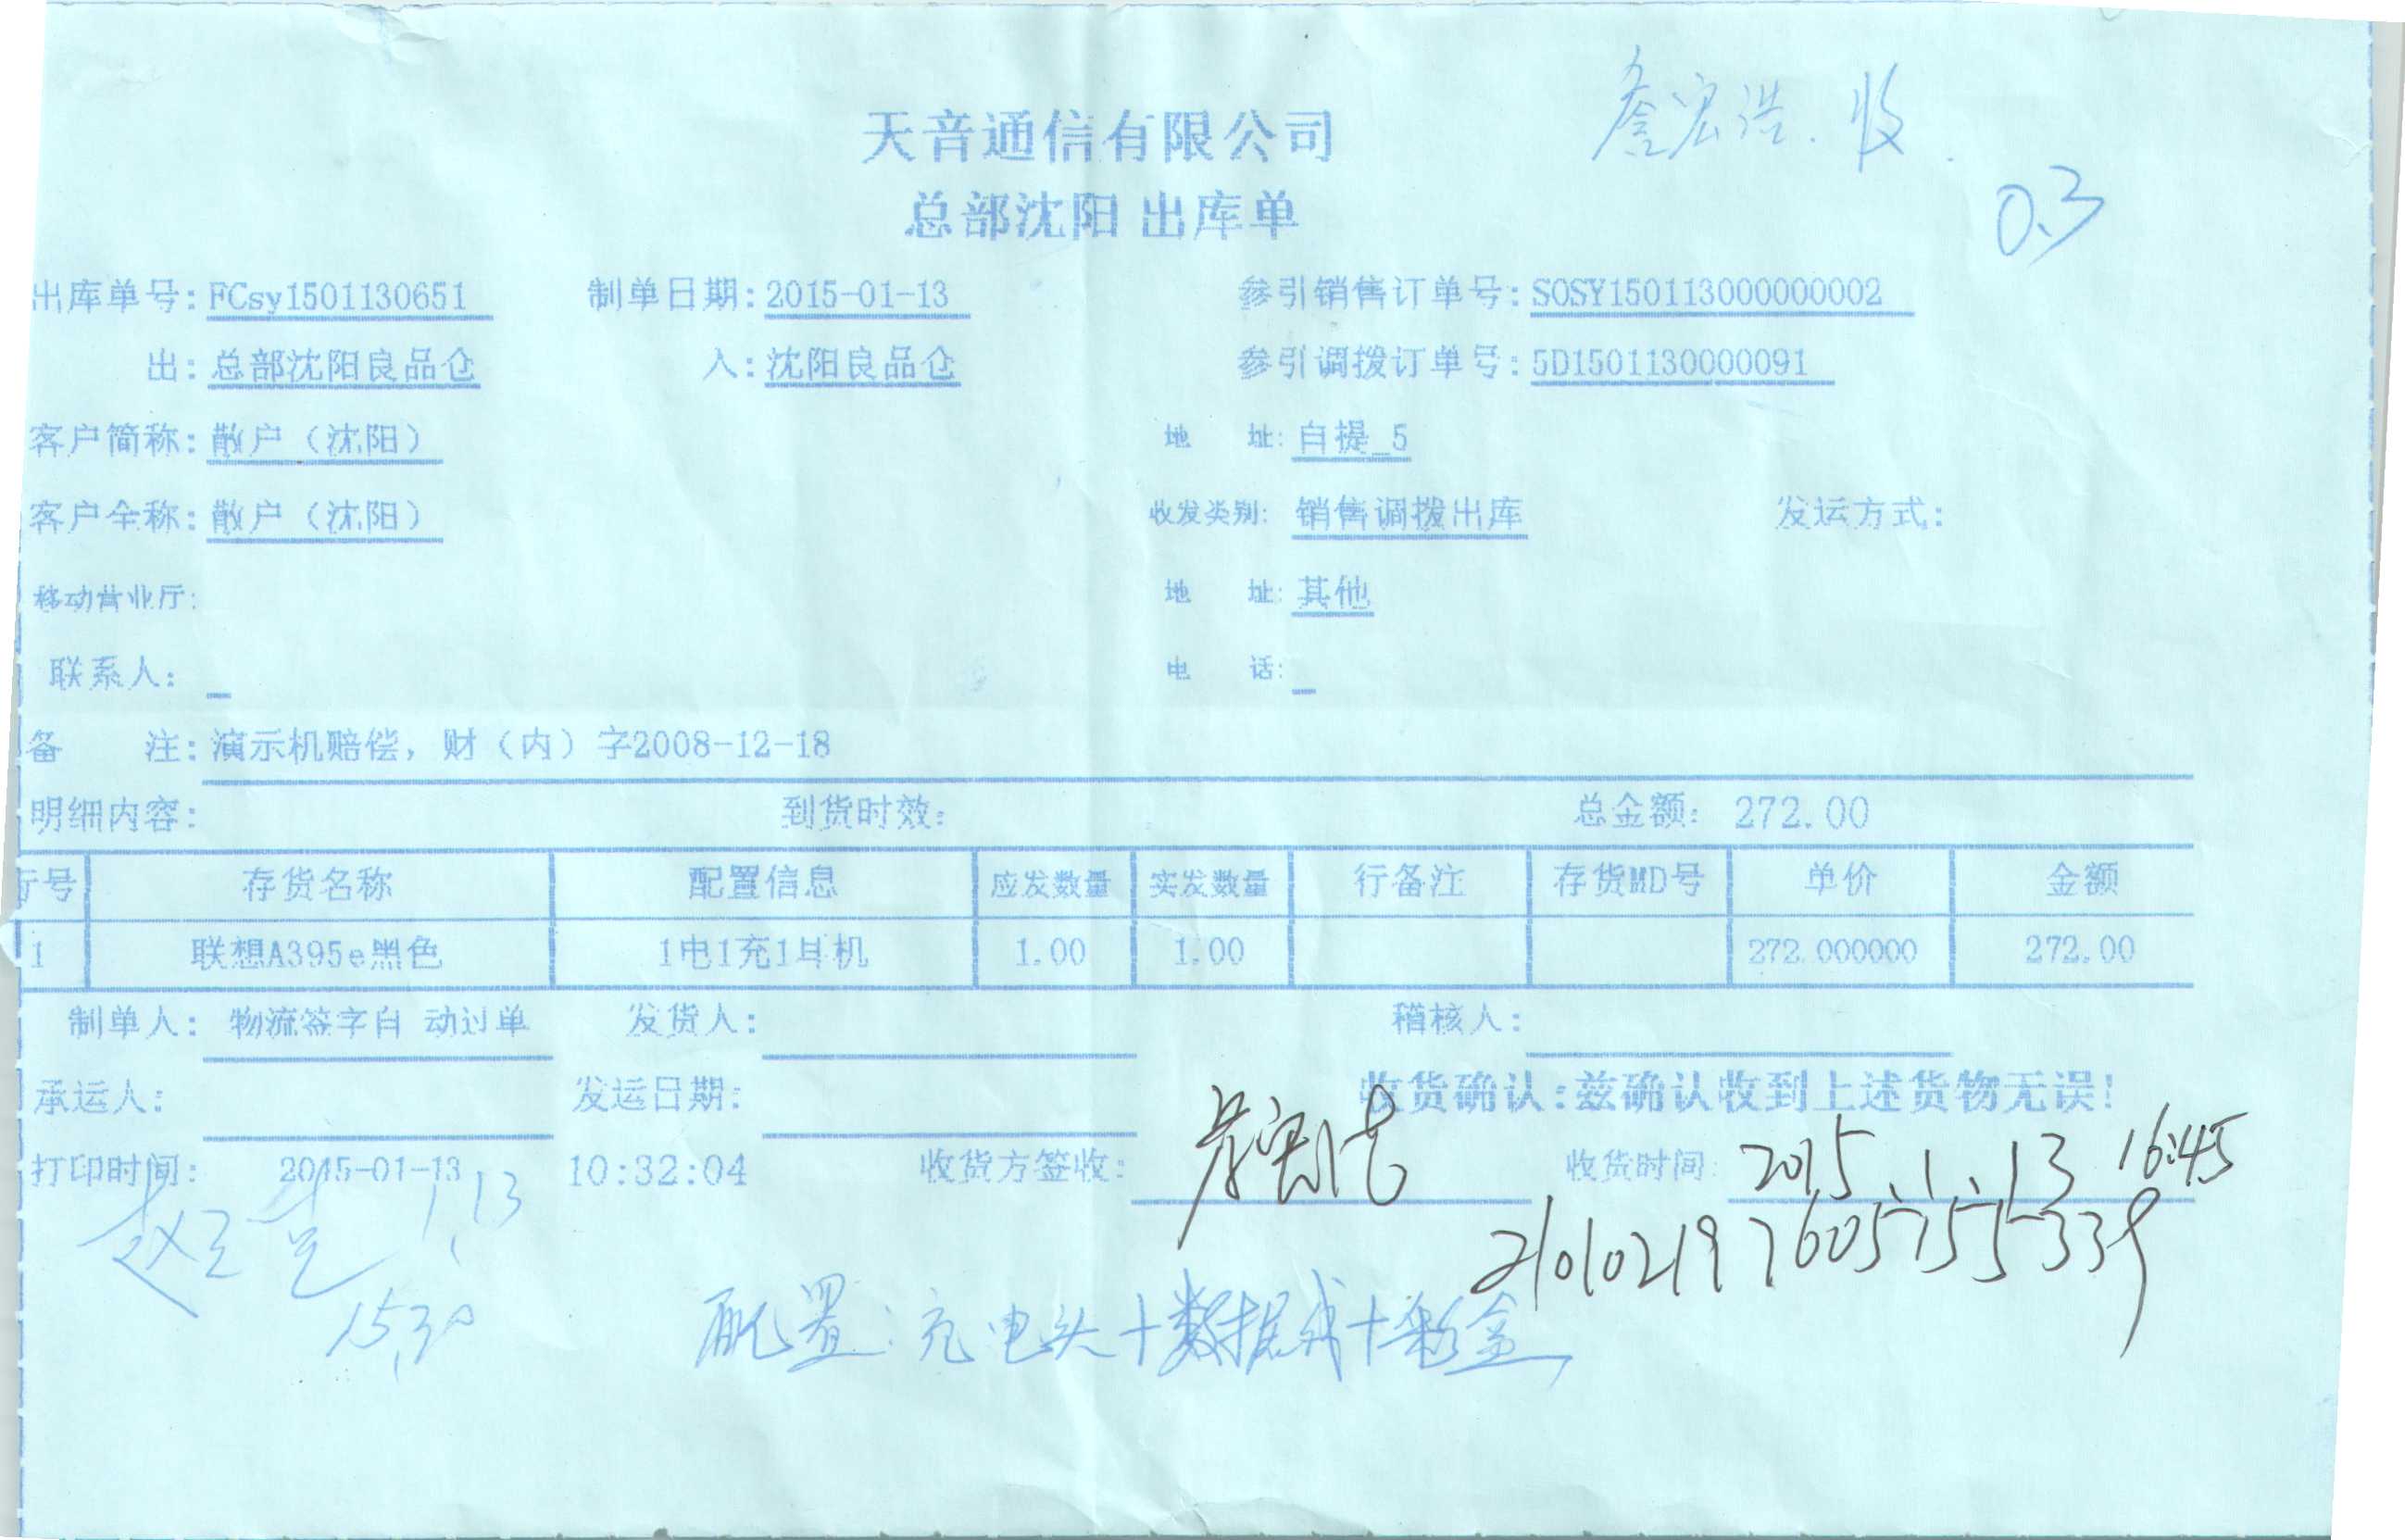 詹宏浩.收.
0.3
天音通信有限公司
总部沈阳 出库单
出库单号: FCsy1501130651 制单日期: 2015-01-13 参引销售订单号: SOSY150113000000002
出: 总部沈阳良品仓 入: 沈阳良品仓 参引调拨订单号: 5D1501130000091
客户简称: 散户（沈阳） 地 址: 自提_5
客户全称: 散户（沈阳） 收发类别: 销售调拨出库 发运方式:
移动营业厅: 地 址: 其他
联系人: 电 话:
备 注: 演示机赔偿，财（内）字2008-12-18
明细内容: 到货时效: 总金额: 272.00
行号 存货名称 配置信息 应发数量 实发数量 行备注 存货MD号 单价 金额
1 联想A395e黑色 1电1充1耳机 1.00 1.00 272.000000 272.00
制单人: 物流签字自 动过单 发货人: 稽核人:
承运人: 发运日期: 收货确认:兹确认收到上述货物无误!
打印时间: 2015-01-13 10:32:04 收货方签收: 詹宏浩 收货时间: 2015.1.13 16:45
1.13
15:30
配置:充电头+数据线+彩盒